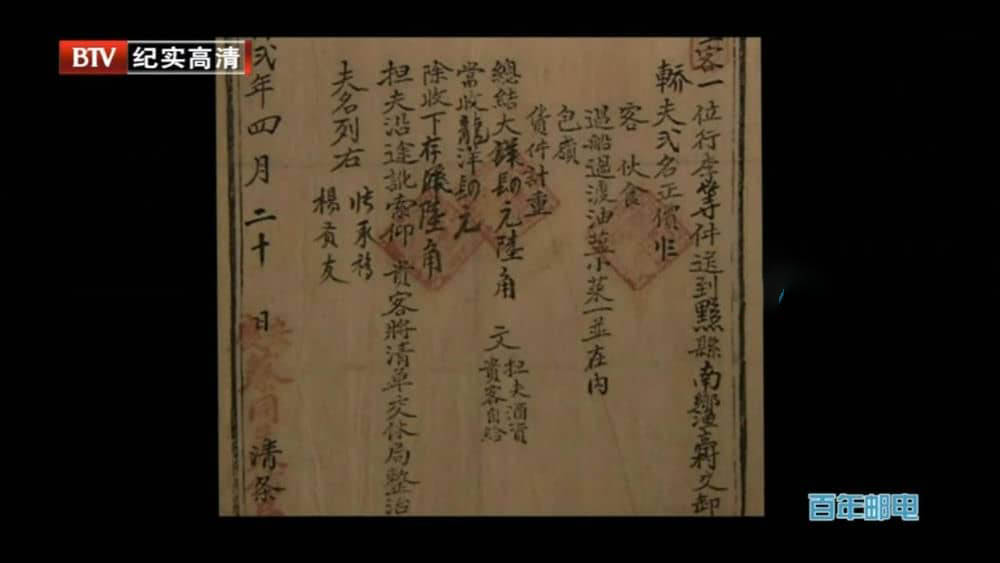 BTV 纪实高清
客一位行李等件送到黟縣南鄉 交卸
轎夫弍名正價
客 伙食
過船過渡油 小菜一並在內
包嶺
貨件計重
總結大洋肆元陸角 文
担夫酒資
貴客自給
當收龍洋 元
除收下存 陸角
担夫沿途訛索仰 貴客將清单交休局整治
夫名列右
承
楊 友
弍年四月二十 日 清条
百年邮电